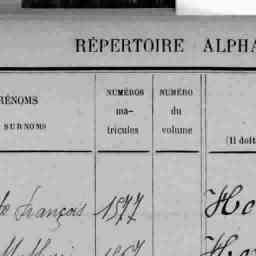 RÉPERTOIRE ALPHA
RÉNOMS
SURNOMS
NUMÉROS
ma-
tricules
NUMÉRO
du
volume
(Il doit
te François 1877 Ho